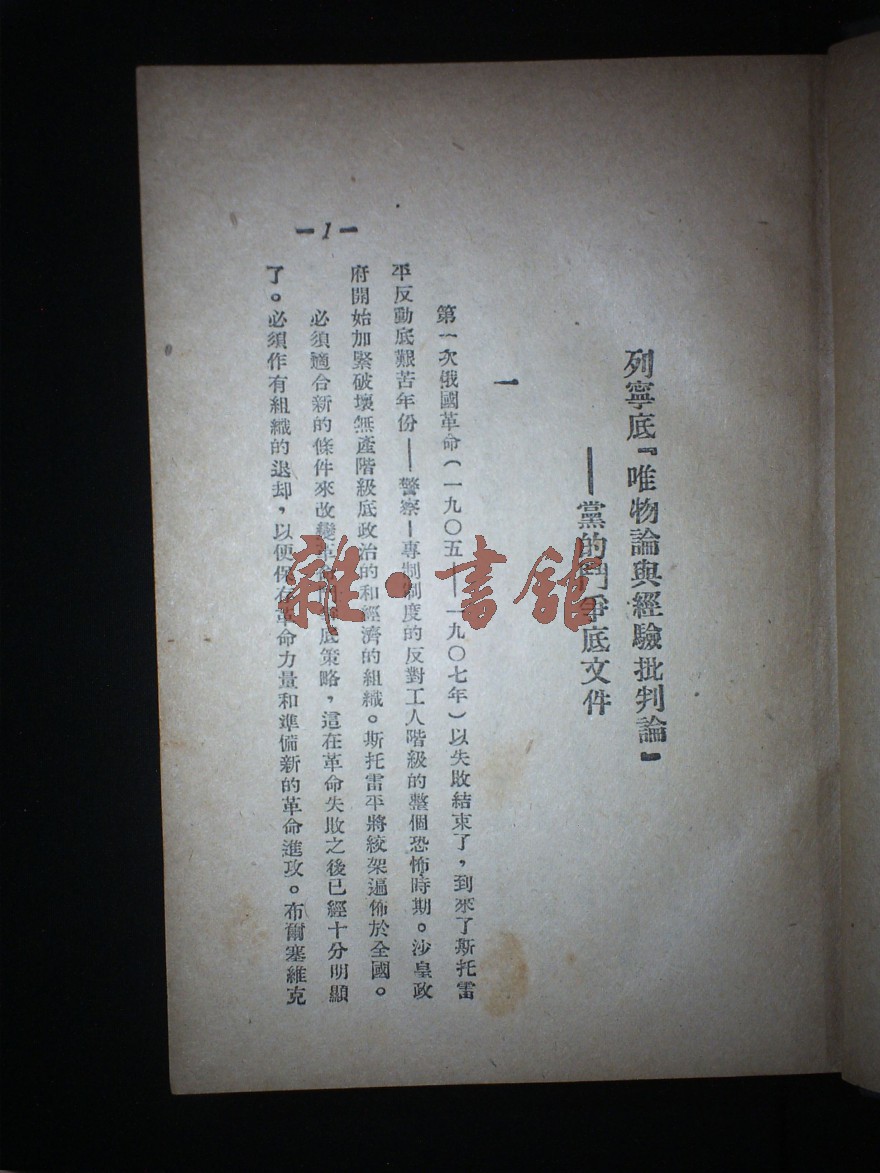 列寧底『唯物論與經驗批判論』
——黨的鬥爭底文件
一
第一次俄國革命(一九〇五——一九〇七年)以失敗結束了，到來了斯托雷
平反動底艱苦年份——警察—專制制度的反對工人階級的整個恐怖時期。沙皇政
府開始加緊破壞無產階級底政治的和經濟的組織。斯托雷平將絞架遍佈於全國。
必須適合新的條件來改變革命底策略，這在革命失敗之後已經十分明顯
了。必須作有組織的退却，以便保存革命力量和準備新的革命進攻。布爾塞維克
—1—
雜·書館